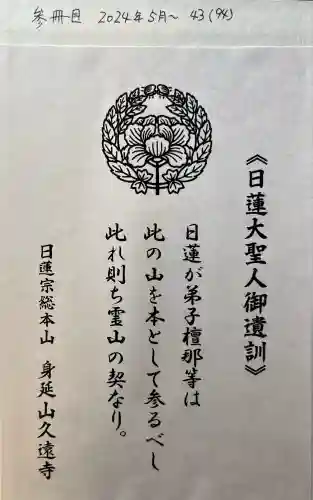 参冊目 2024年5月～ 43(94)
《日蓮大聖人御遺訓》
日蓮が弟子檀那等は
此の山を本として参るべし
此れ則ち霊山の契なり。
日蓮宗総本山 身延山久遠寺